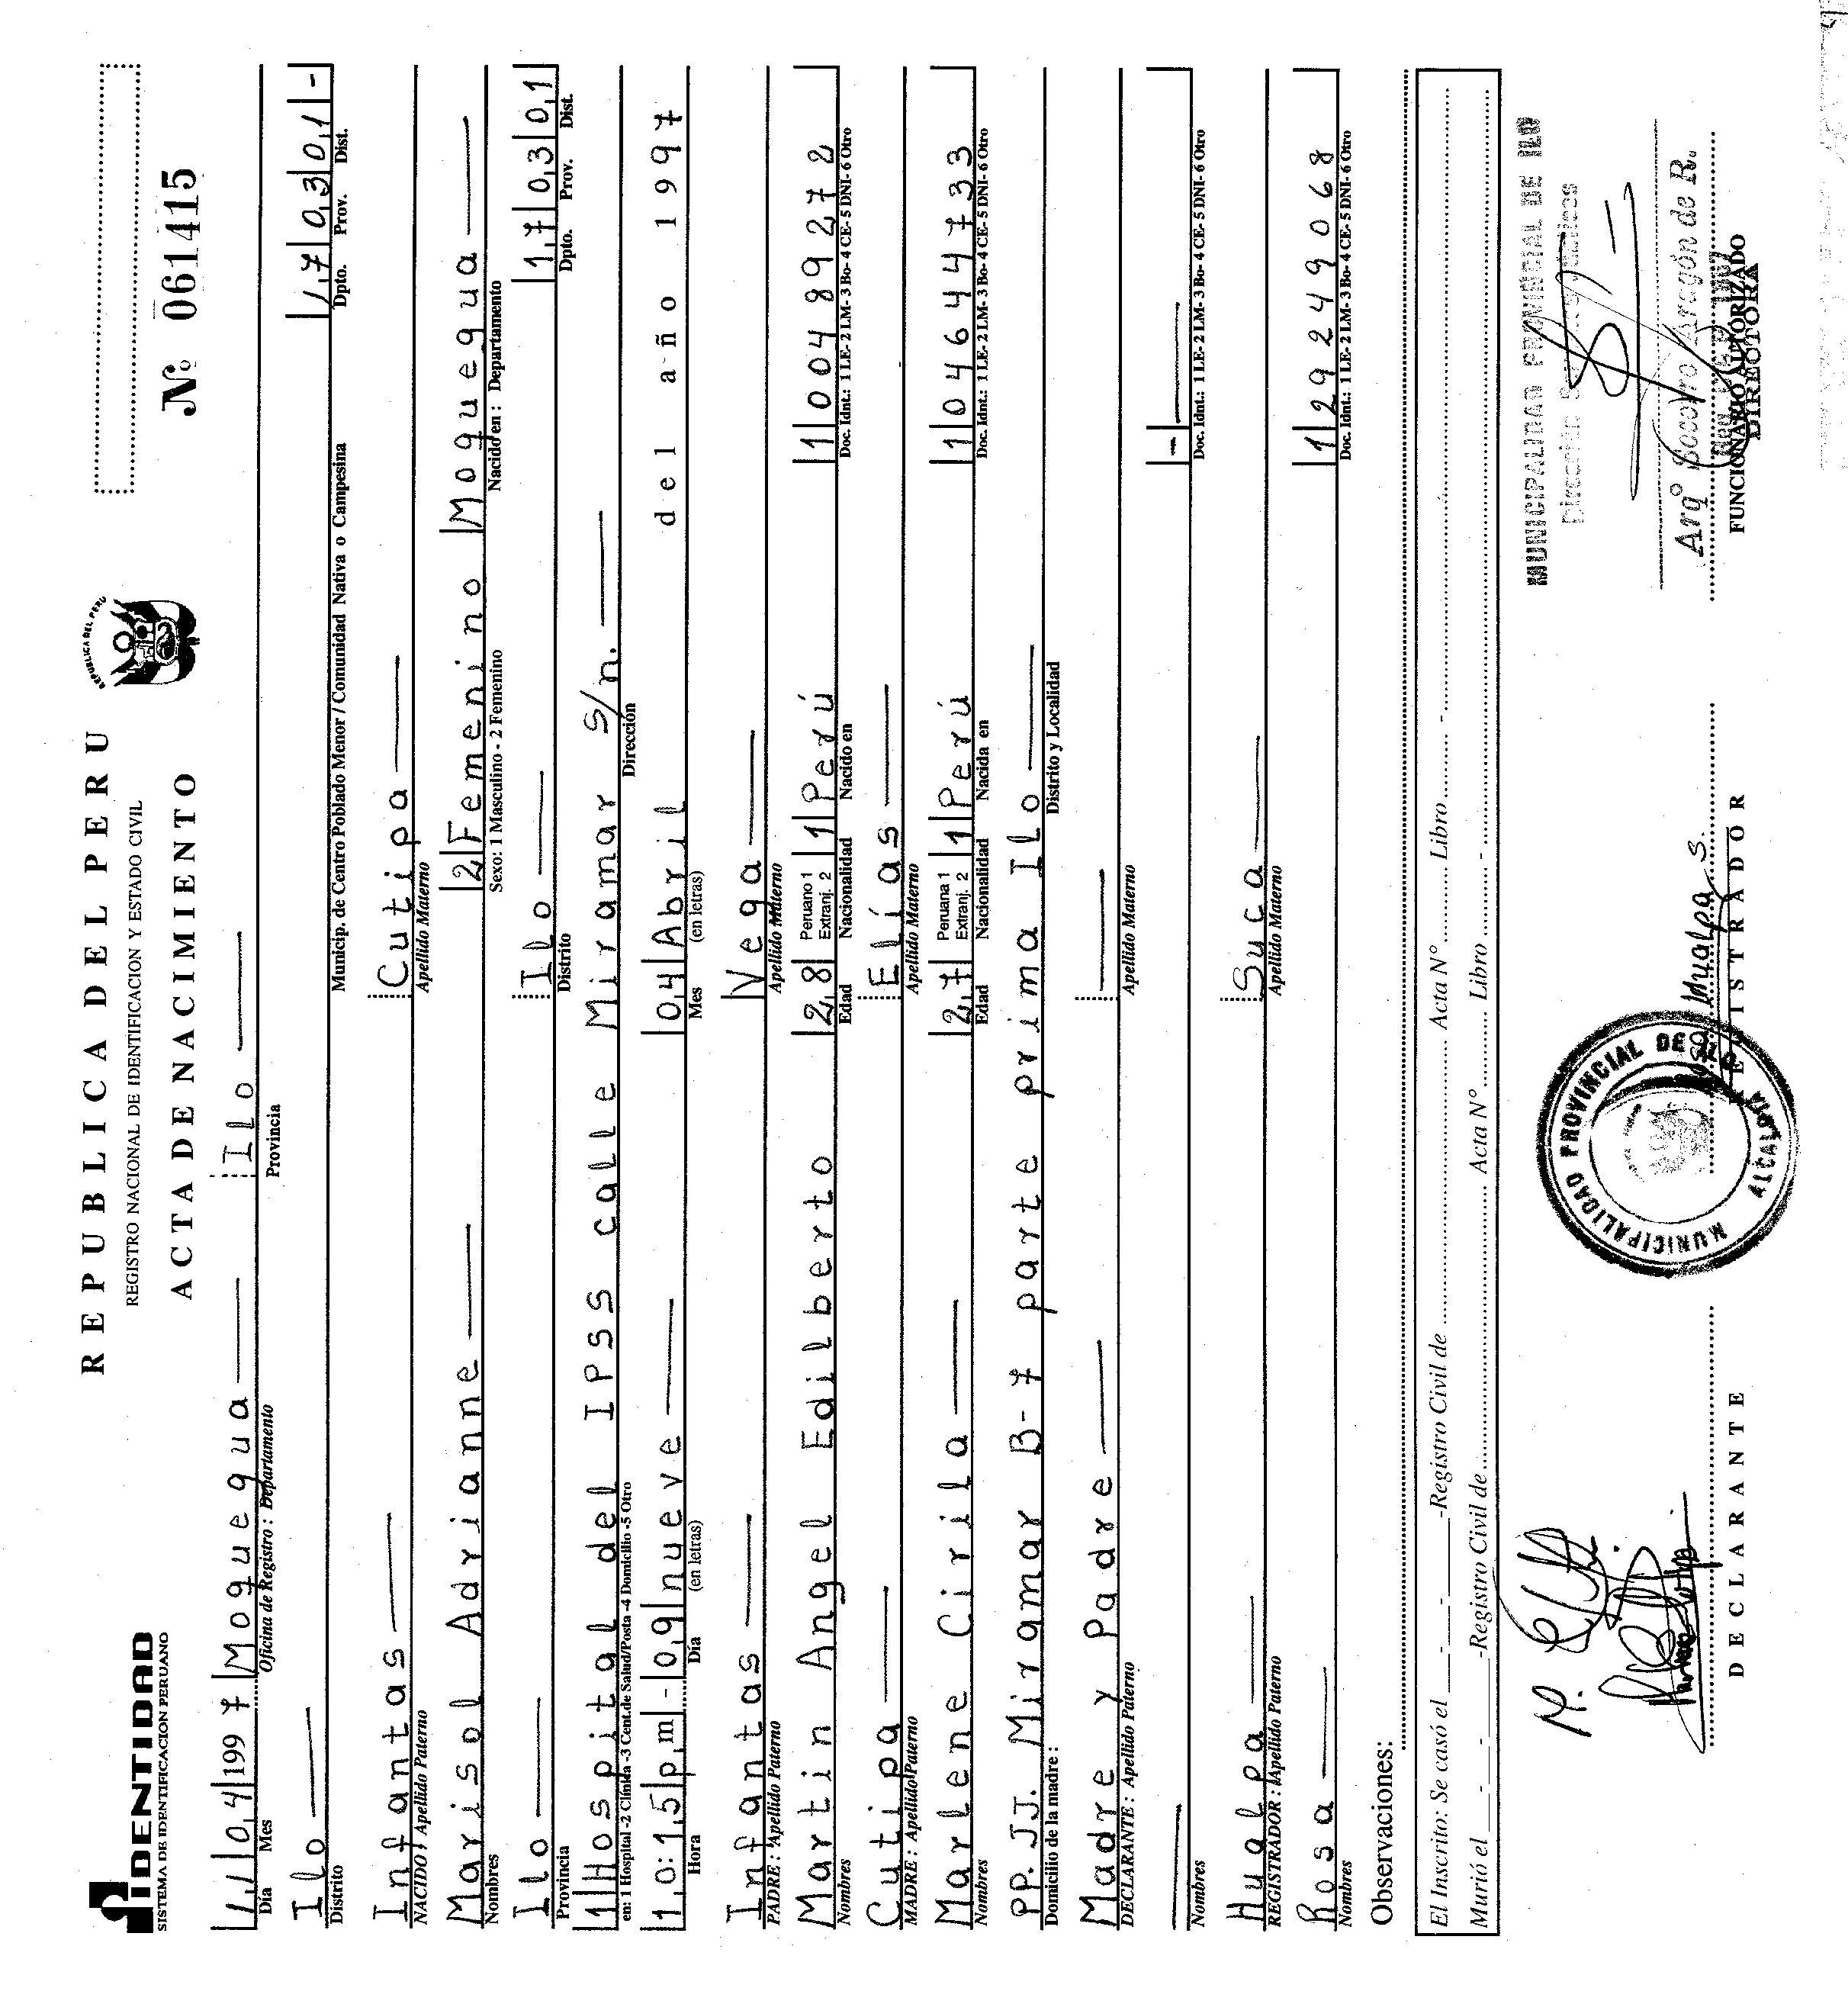 IDENTIDAD
SISTEMA DE IDENTIFICACION PERUANO
REPUBLICA DEL PERU
REGISTRO NACIONAL DE IDENTIFICACION Y ESTADO CIVIL
ACTA DE NACIMIENTO
REPUBLICA DEL PERU
Nº 061415
1,1 0,4 1997 Moquegua Ilo
Día Mes Oficina de Registro : Departamento Provincia
Ilo 1,7 0,3 0,1 -
Distrito Municip. de Centro Poblado Menor / Comunidad Nativa o Campesina Dpto. Prov. Dist.
Infantas Cutipa
NACIDO : Apellido Paterno Apellido Materno
Marisol Adrianne 2 Femenino Moquegua
Nombres Sexo: 1 Masculino - 2 Femenino Nacido en : Departamento
Ilo Ilo 1,7 0,3 0,1
Provincia Distrito Dpto. Prov. Dist.
1 Hospital del IPSS calle Miramar S/n.
en: 1 Hospital -2 Clínida -3 Cent.de Salud/Posta -4 Domicilio -5 Otro Dirección
1,0:1,5 p,m - 0,9 nueve 0,4 Abril del año 1997
Hora Día (en letras) Mes (en letras)
Infantas Vega
PADRE : Apellido Paterno Apellido Materno
Martin Angel Edilberto 2,8 Peruano 1 Extranj. 2 1 Perú 1 00489272
Nombres Edad Nacionalidad Nacido en Doc. Idnt.: 1 LE- 2 LM- 3 Bo- 4 CE- 5 DNI- 6 Otro
Cutipa Elías
MADRE : Apellido Paterno Apellido Materno
Marlene Cirila 2,7 Peruana 1 Extranj. 2 1 Perú 1 04644733
Nombres Edad Nacionalidad Nacida en Doc. Idnt.: 1 LE- 2 LM- 3 Bo- 4 CE- 5 DNI- 6 Otro
PP. JJ. Miramar B-7 parte prima Ilo
Domicilio de la madre : Distrito y Localidad
Madre y Padre
DECLARANTE : Apellido Paterno Apellido Materno
-
Nombres Doc. Idnt.: 1 LE- 2 LM- 3 Bo- 4 CE- 5 DNI- 6 Otro
Hualpa Suca
REGISTRADOR : Apellido Paterno Apellido Materno
Rosa 1 29249068
Nombres Doc. Idnt.: 1 LE- 2 LM- 3 Bo- 4 CE- 5 DNI- 6 Otro
Observaciones:
El Inscrito: Se casó el - - -Registro Civil de Acta Nº Libro -
Murió el - - -Registro Civil de Acta Nº Libro -
MUNICIPALIDAD PROVINCIAL DE ILO
MUNICIPALIDAD PROVINCIAL DE ILO
ALCALDIA
Hualpa S.
Arqº Socorro Aragón de R.
DIRECTORA
DECLARANTE
REGISTRADOR
FUNCIONARIO AUTORIZADO